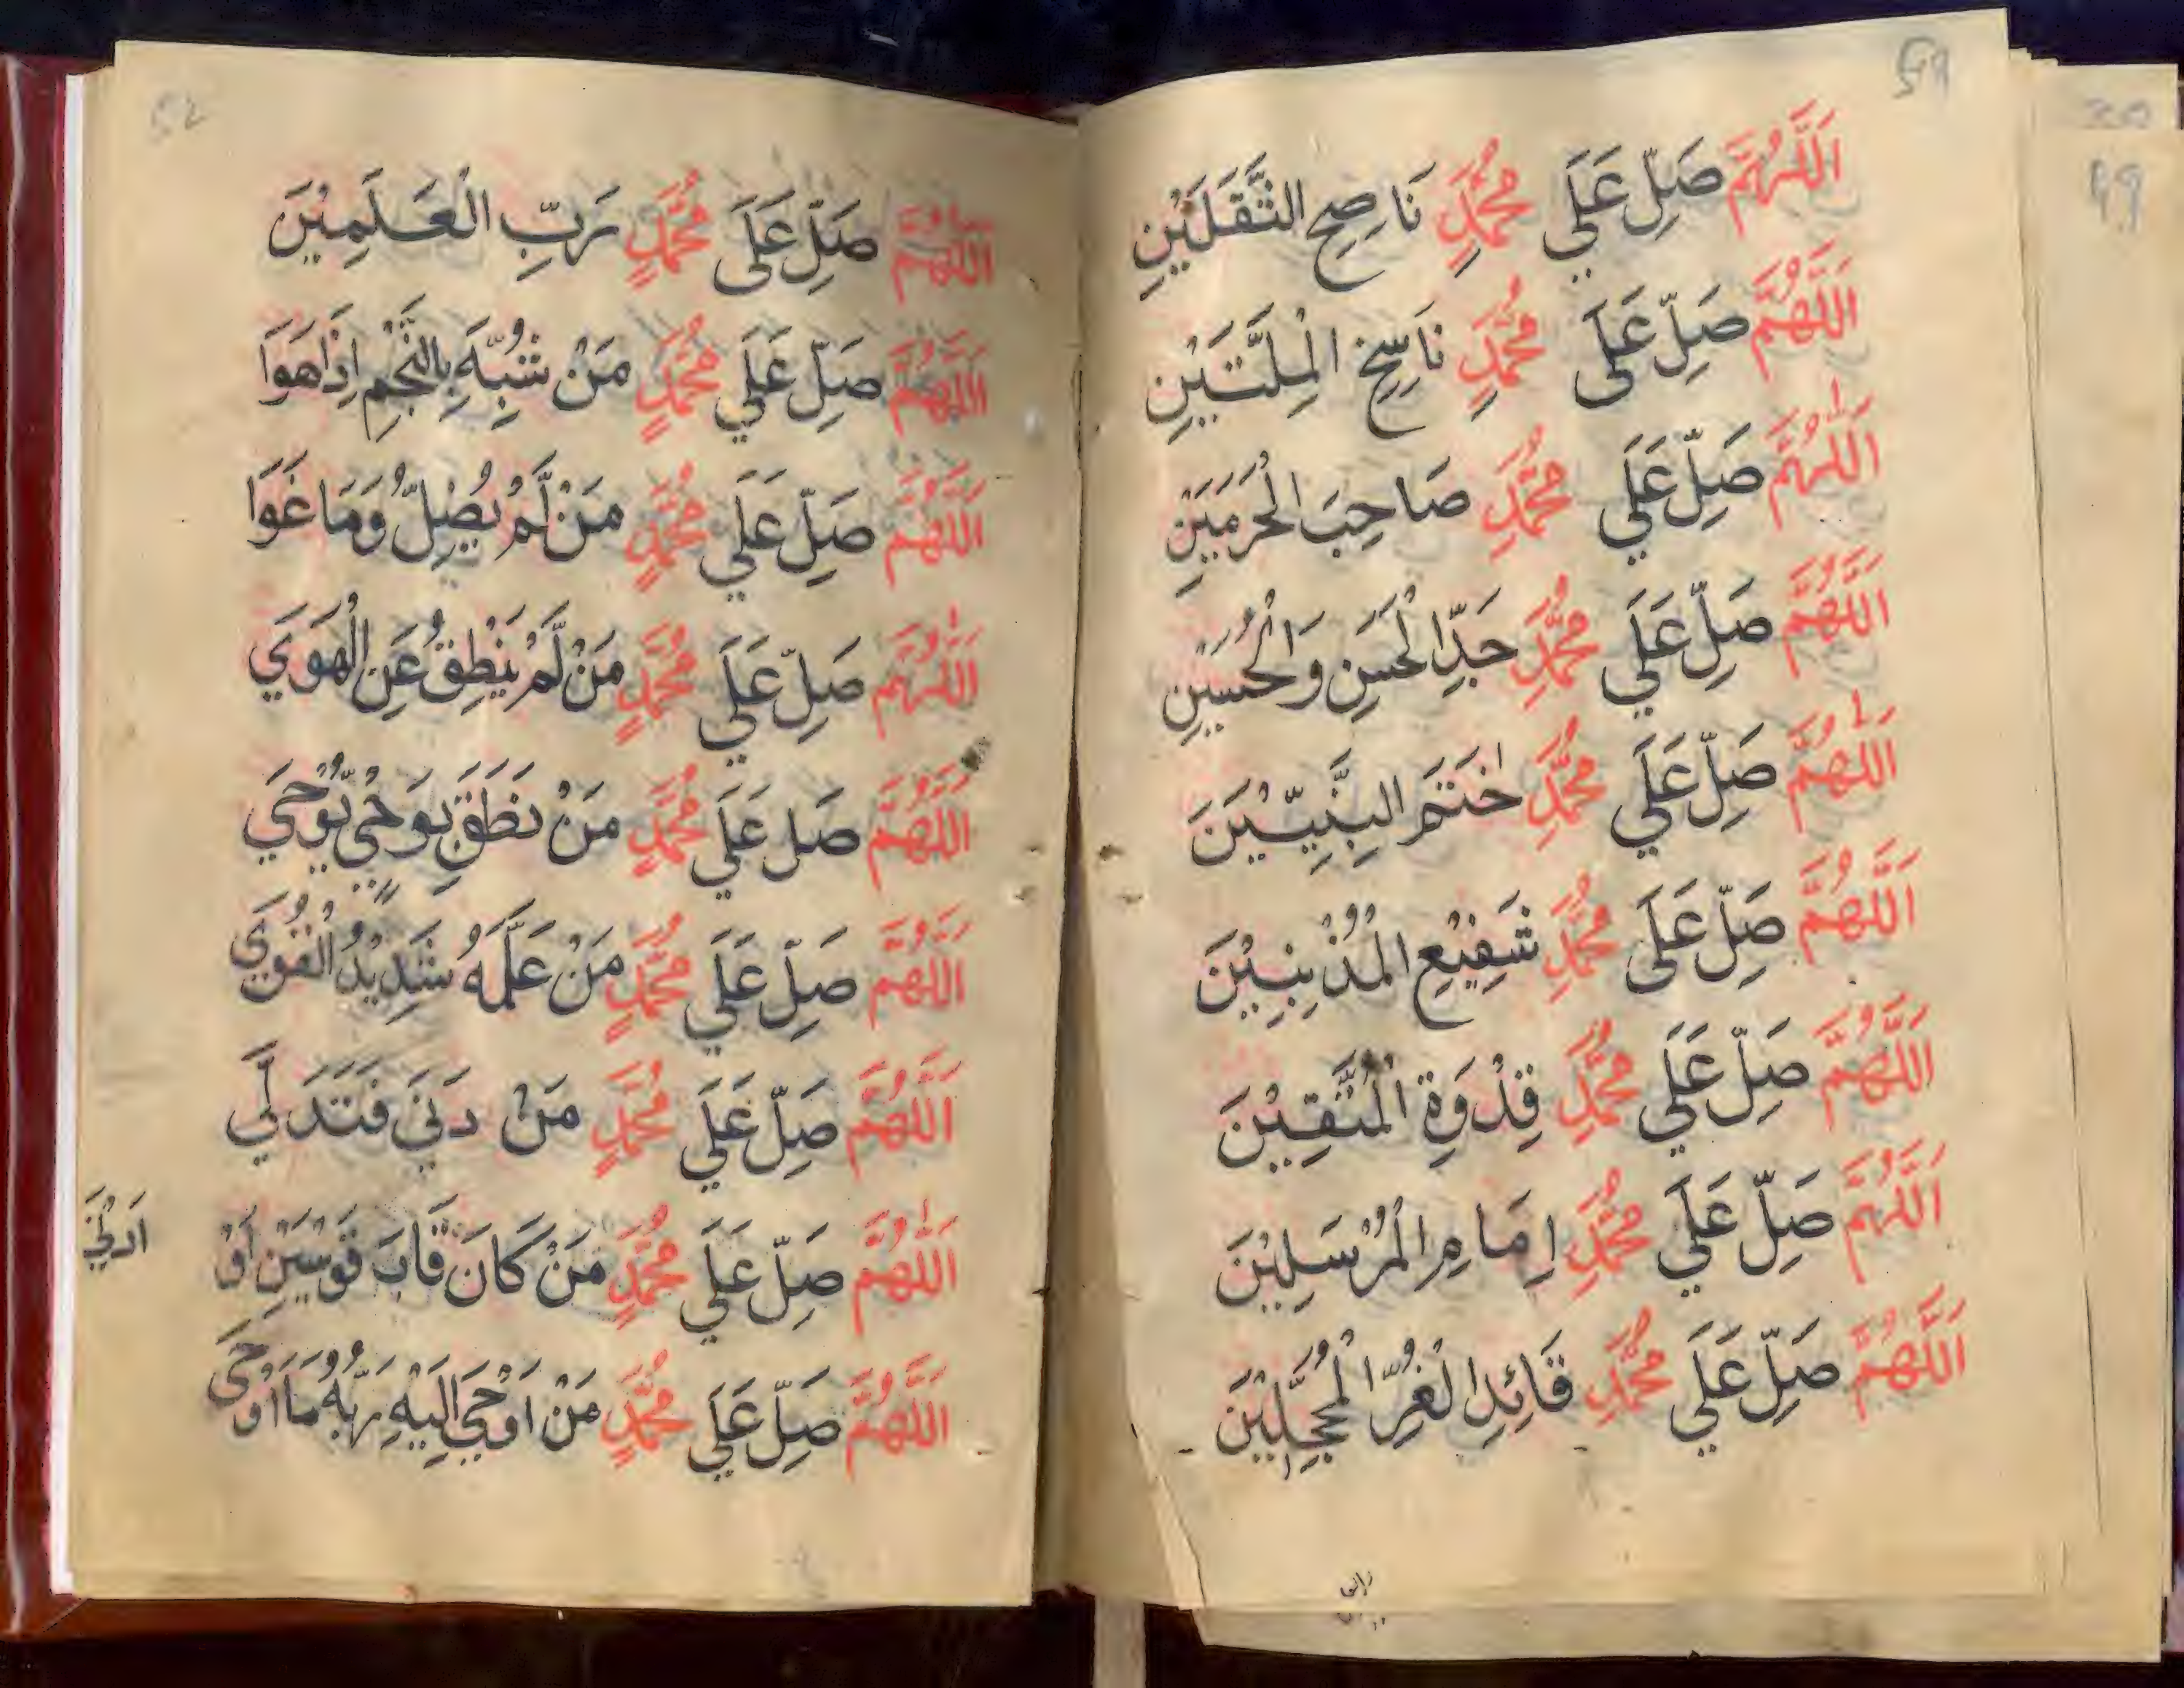 اَللّٰهُمَّ صَلِّ عَلَي مُحَمَّدٍ نَاصِحِ الثَّقَلَيْنِ
اَللّٰهُمَّ صَلِّ عَلَى مُحَمَّدٍ نَاسِخِ الْمِلَّتَيْنِ
اَللّٰهُمَّ صَلِّ عَلَي مُحَمَّدٍ صَاحِبَ الْحَرَمَيْنِ
اَللّٰهُمَّ صَلِّ عَلَي مُحَمَّدٍ جَدِّ الْحَسَنِ وَالْحُسَيْنِ
اَللّٰهُمَّ صَلِّ عَلَي مُحَمَّدٍ خٰتَمَ النَّبِيِّيْنَ
اَللّٰهُمَّ صَلِّ عَلَى مُحَمَّدٍ شَفِيْعِ الْمُذْنِبِيْنَ
اَللّٰهُمَّ صَلِّ عَلَي مُحَمَّدٍ قِدْوَةِ الْمُتَّقِيْنَ
اَللّٰهُمَّ صَلِّ عَلَي مُحَمَّدٍ اِمَامِ الْمُرْسَلِيْنَ
اَللّٰهُمَّ صَلِّ عَلَي مُحَمَّدٍ قَائِدِ الْغُرِّ الْمُحَجَّلِيْنَ
52
اَللّٰهُمَّ صَلِّ عَلَى مُحَمَّدٍ رَبِّ الْعَلَمِيْنَ
اَللّٰهُمَّ صَلِّ عَلَي مُحَمَّدٍ مَنْ شُبِّهَ بِالنَّجْمِ اِذَا هَوَا
اَللّٰهُمَّ صَلِّ عَلَي مُحَمَّدٍ مَنْ لَّمْ يُضِلُّ وَمَا غَوَا
اَللّٰهُمَّ صَلِّ عَلَي مُحَمَّدٍ مَنْ لَّمْ يَنْطِقُ عَنِ الْهَوَي
اَللّٰهُمَّ صَل عَلَي مُحَمَّدٍ مَنْ نَطَقَ بِوَحْيٍ يُّوْحَي
اَللّٰهُمَّ صَلِّ عَلَي مُحَمَّدٍ مَنْ عَلَّمَهُ شَدِيْدُ الْقُوَي
اَللّٰهُمَّ صَلِّ عَلَي مُحَمَّدٍ مَنْ دَنَي فَتَدَلَّي
اَللّٰهُمَّ صَلِّ عَلَي مُحَمَّدٍ مَنْ كَانَ قَابَ قَوْسَيْنِ اَوْ اَدْنَي
اَللّٰهُمَّ صَلِّ عَلَي مُحَمَّدٍ مَنْ اَوْحَي اِلَيْهِ رَبُّهُ مَا اَوْحَى